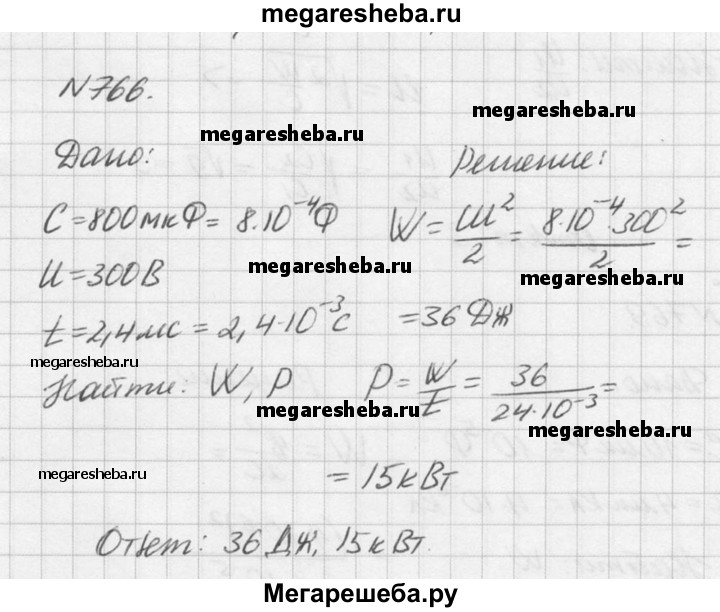 megaresheba.ru
N766.
megaresheba.ru
megaresheba.ru
Дано:
Решение:
megaresheba.ru
C = 800 мкФ = 8·10⁻⁴ Ф
W = CU²/2 = 8·10⁻⁴·300²/2 =
megaresheba.ru
megaresheba.ru
U = 300 В
t = 2,4 мс = 2,4·10⁻³ с
= 36 Дж
megaresheba.ru
Найти: W, P
P = W/t = 36/24·10⁻³ =
megaresheba.ru
megaresheba.ru
megaresheba.ru
= 15 кВт
Ответ: 36 Дж, 15 кВт.
Мегарешеба.ру